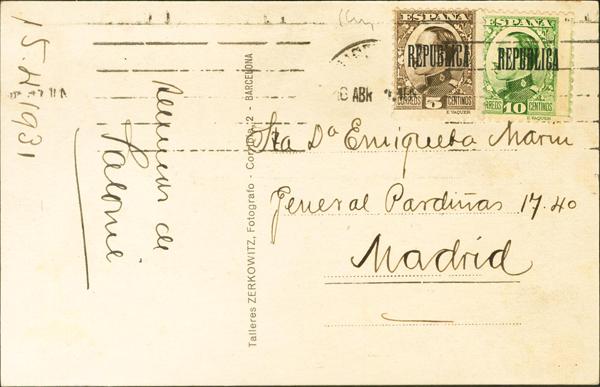 15. IV. 1931
Recuerdos de
ESPAÑA
REPUBLICA
CORREOS 5 CENTIMOS
E. VAQUER
ESPAÑA
REPUBLICA
CORREOS 10 CENTIMOS
E. VAQUER
ABR
Talleres ZERKOWITZ, Fotografo - 2 - BARCELONA
Sta Dª Enriqueta Marin
General Pardiñas 17.40
Madrid